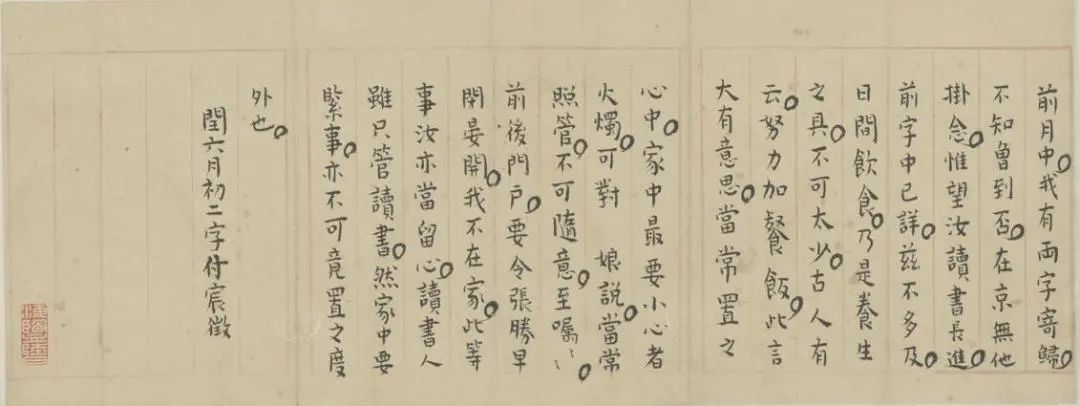 前月中。我有兩字寄歸。
不知曾到否。在京無他
掛念惟望汝讀書長進。
前字中已詳。茲不多及。
日間飲食。乃是養生
之具。不可太少。古人有
云。努力加餐飯。此言
大有意思。當常置之
心中。家中最要小心者
火燭。可對 娘說。當常
照管。不可隨意。至囑〻。
前後門戶。要令張勝早
閉晏開。我不在家。此等
事汝亦當留心。讀書人
雖只管讀書。然家中要
緊事。亦不可竟置之度
外也。
閏六月初二字付宸徵